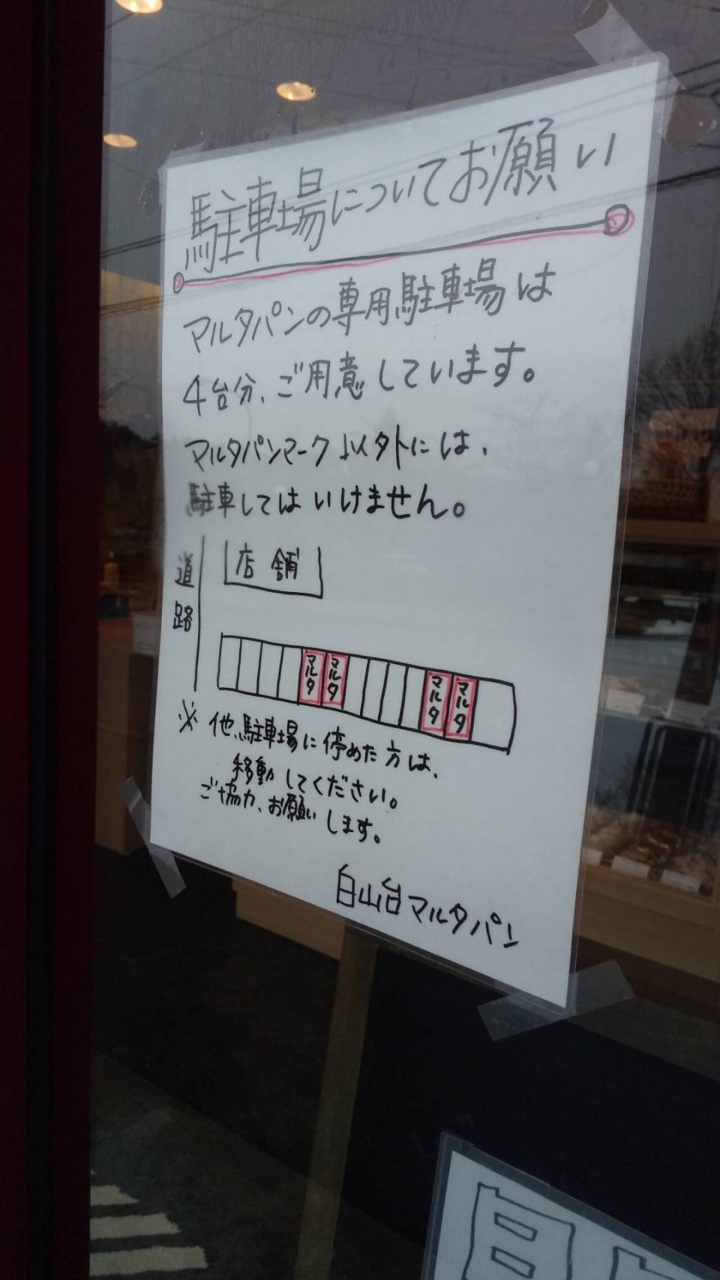 駐車場についてお願い
マルタパンの専用駐車場は
4台分、ご用意しています。
マルタパンマーク以外には、
駐車してはいけません。
道路
店舗
マルタ
マルタ
マルタ
マルタ
※他、駐車場に停めた方は、
移動してください。
ご協力、お願いします。
白山台マルタパン